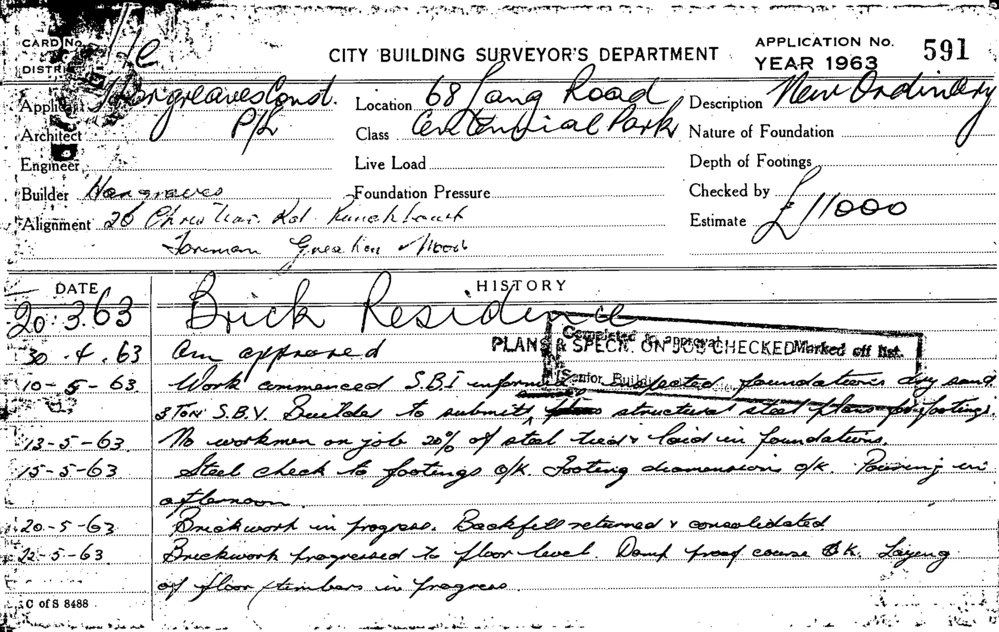 CARD No.
DISTRI
CITY BUILDING SURVEYOR'S DEPARTMENT
APPLICATION No. 591
YEAR 1963
Applicant Hargreaves Const. P/L
Location 68 Lang Road
Description New Ordinary
Architect
Class Centennial Park
Nature of Foundation
Engineer
Live Load
Depth of Footings
Builder Hargreaves
Foundation Pressure
Checked by
Alignment 26 Rd. Punchbowl
Estimate £11000
Foreman
DATE HISTORY
20.3.63 Brick Residence
Completed to approval Marked off list.
30.4.63 am approved
PLANS & SPECN. ON JOB CHECKED
Senior Building
10-5-63 Work commenced S.B.I inspected foundations dry sand.
3 TON S.B.V. Builder to submit structural steel plans for footings.
13-5-63 No workmen on job 20% of steel tied & laid in foundations.
15-5-63 Steel check to footings o/k. Footing diamension o/k. Pouring in
afternoon.
20-5-63 Brickwork in progress. Backfill returned & consolidated
22-5-63 Brickwork progressed to floor level. Damp proof course OK. Laying
of floor timbers in progress.
C of S 8488